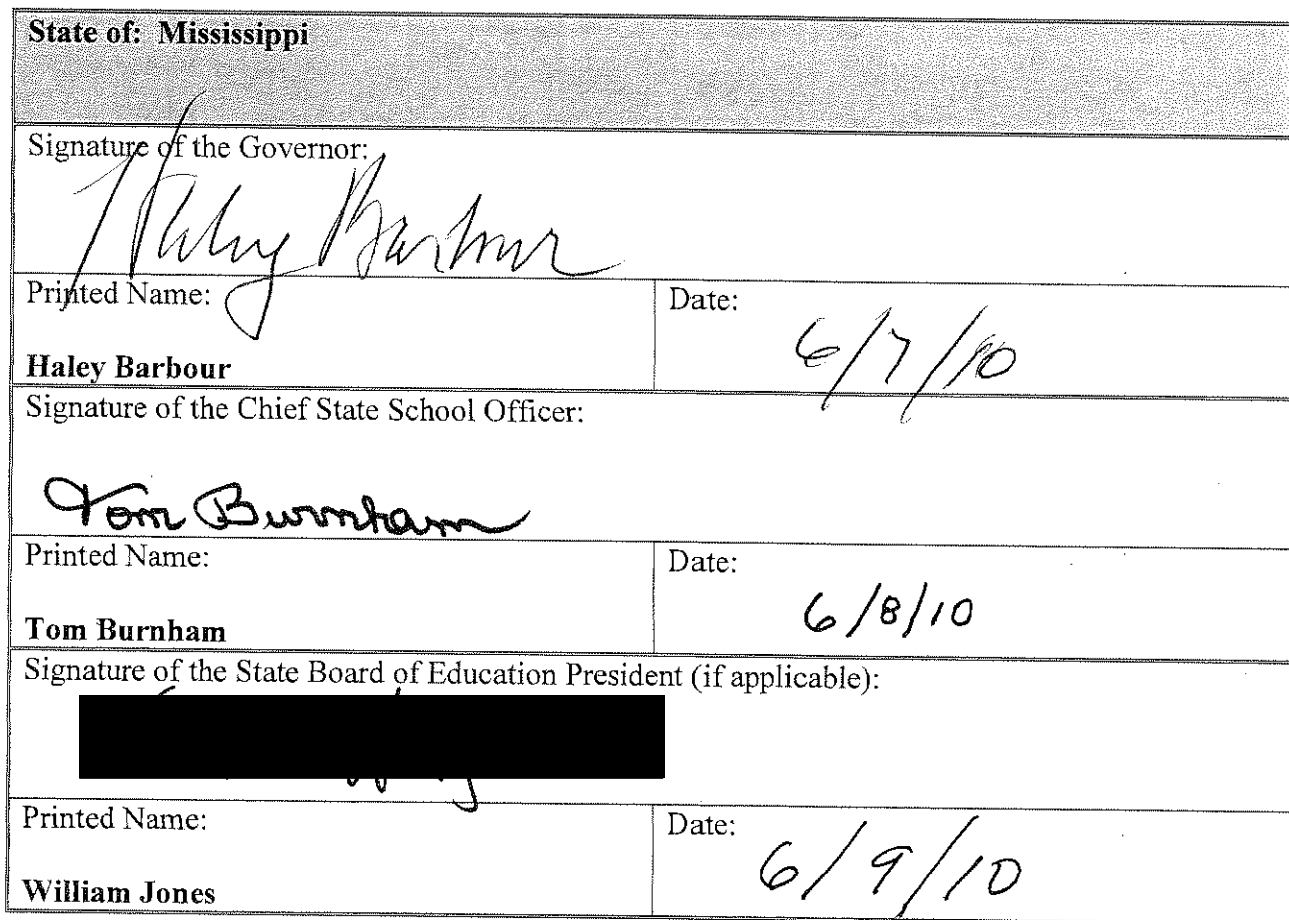 State of: Mississippi
Signature of the Governor:
Haley Barbour
Printed Name:
Date:
Haley Barbour
6/7/10
Signature of the Chief State School Officer:
Tom Burnham
Printed Name:
Date:
Tom Burnham
6/8/10
Signature of the State Board of Education President (if applicable):
Printed Name:
Date:
William Jones
6/9/10